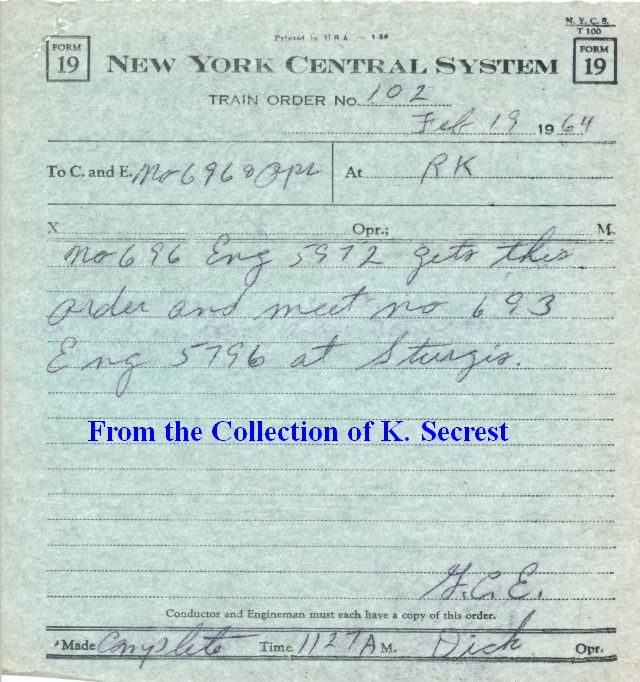 Printed in U.S.A. — 1-56
N.Y.C.S.
T 100
FORM
19
NEW YORK CENTRAL SYSTEM
FORM
19
TRAIN ORDER No. 102
Feb 19 1964
To C. and E. No 696 & Opr At RK
X Opr.; M.
No 696 Eng 5972 gets this
order and meet no 693
Eng 5796 at Sturgis.
From the Collection of K. Secrest
G.C.E.
Conductor and Engineman must each have a copy of this order.
Made Complete Time 1127A M. Dick Opr.